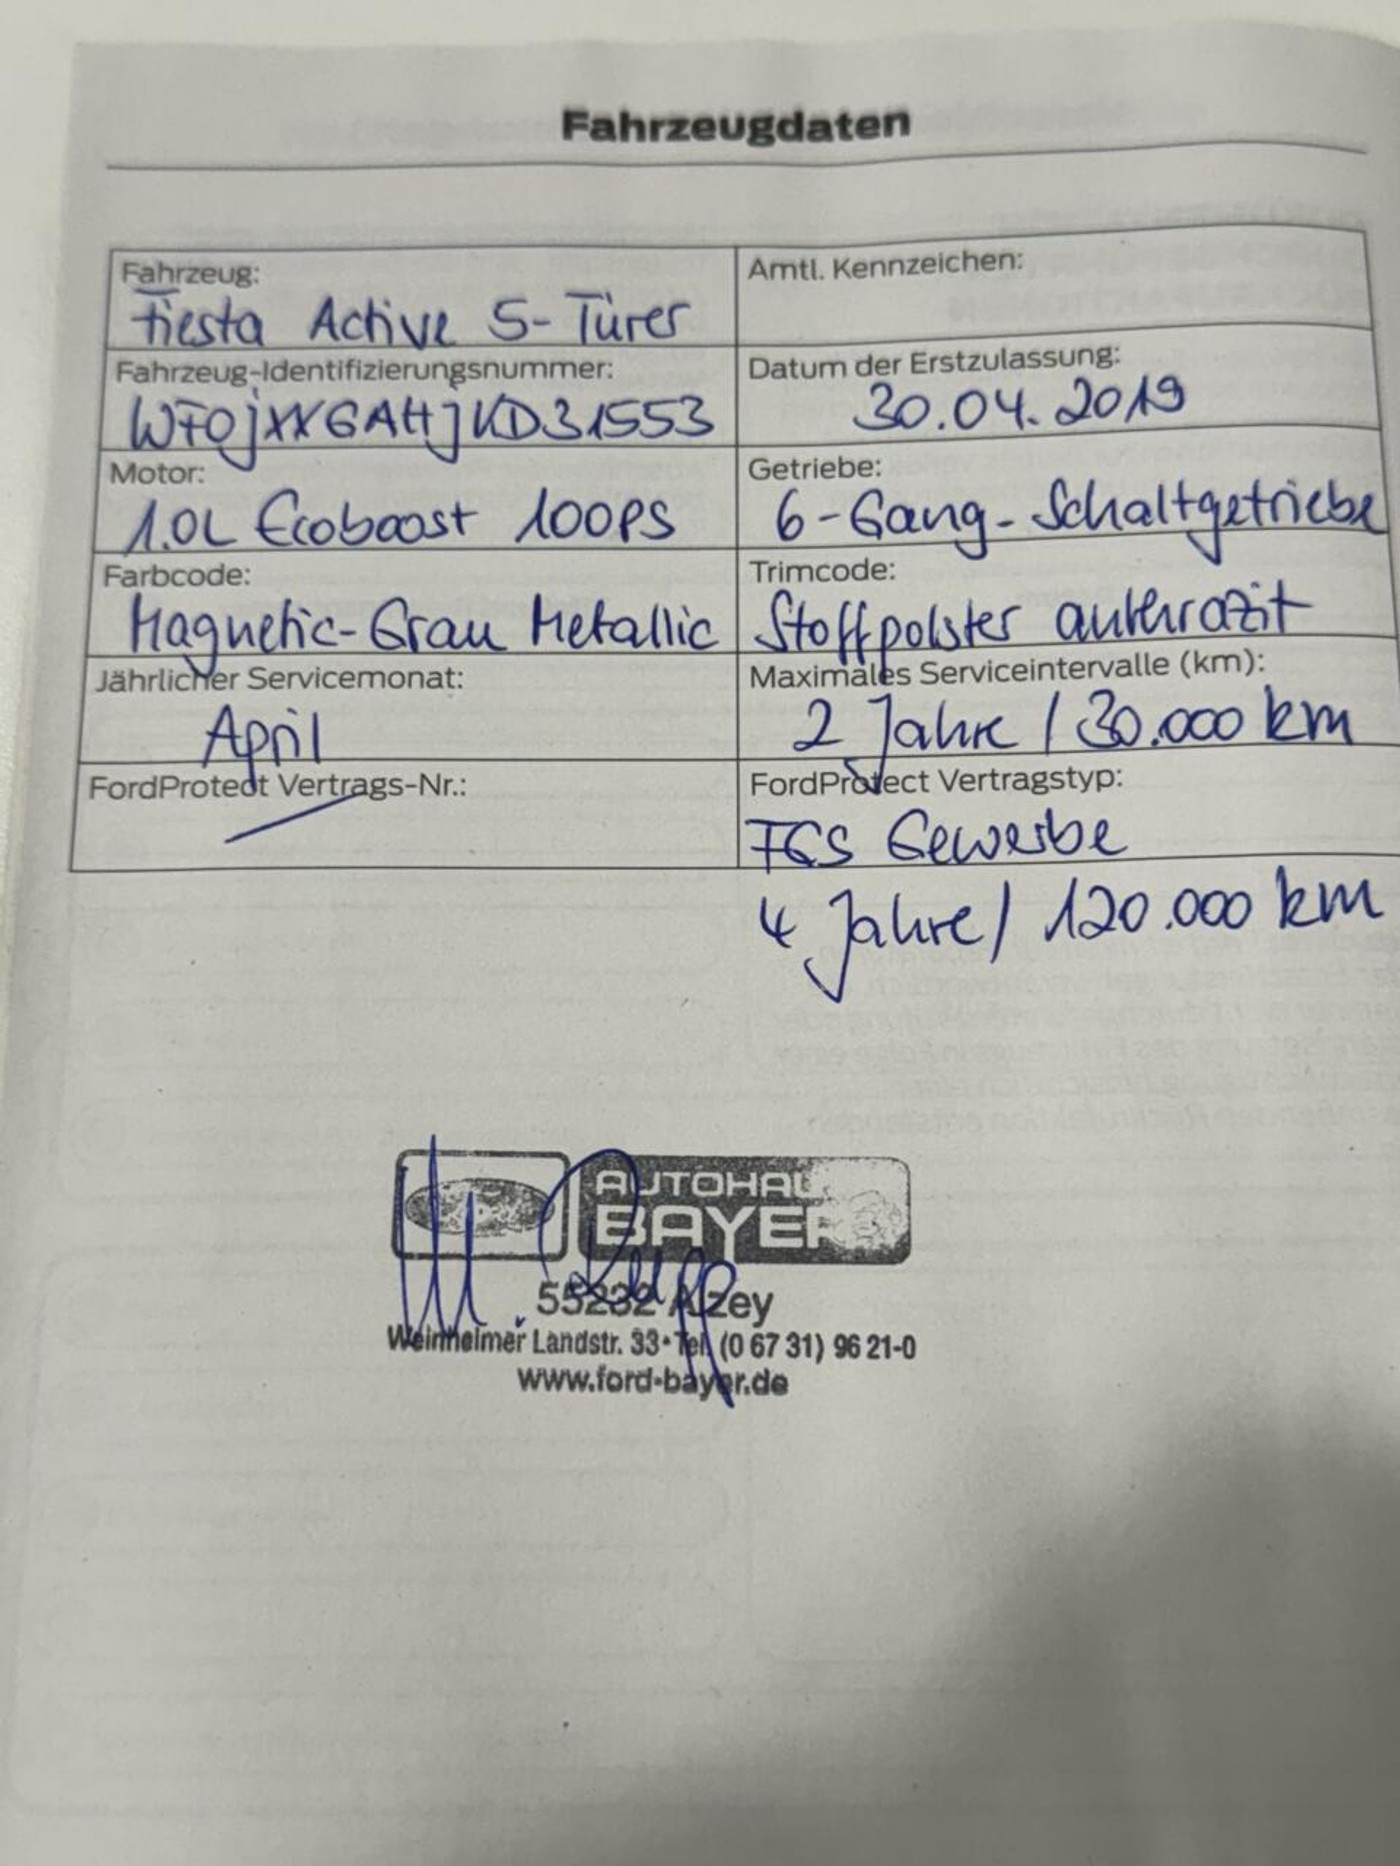 Fahrzeugdaten
Fahrzeug:
Fiesta Active 5-Türer
Amtl. Kennzeichen:
Fahrzeug-Identifizierungsnummer:
WF0jXXGAHjKD31553
Datum der Erstzulassung:
30.04.2019
Motor:
1.0L Ecoboost 100PS
Getriebe:
6-Gang-Schaltgetriebe
Farbcode:
Magnetic-Grau Metallic
Trimcode:
Stoffpolster anthrazit
Jährlicher Servicemonat:
April
Maximales Serviceintervalle (km):
2 Jahre / 30.000 km
FordProtect Vertrags-Nr.:
FordProtect Vertragstyp:
FGS Gewerbe
4 Jahre / 120.000 km
AUTOHAU
BAYER
55232 Alzey
Weinheimer Landstr. 33 • Tel. (0 67 31) 96 21-0
www.ford-bayer.de